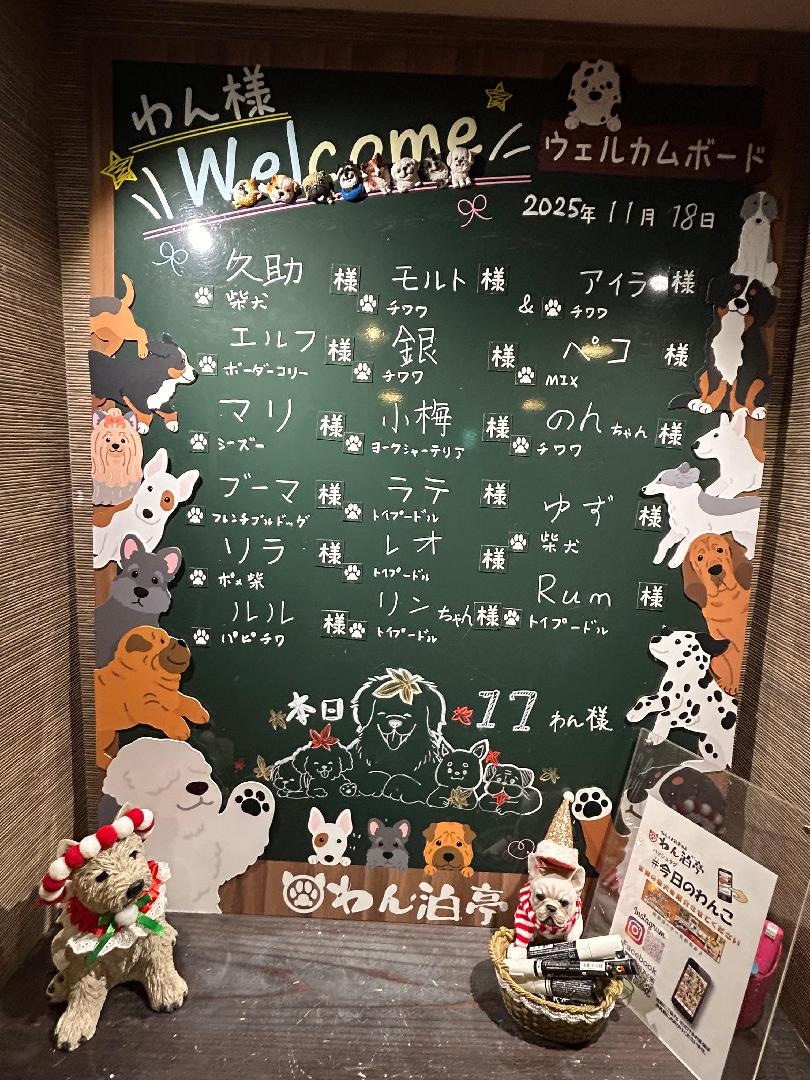 わん様
Welcome
ウェルカムボード
2025年 11月 18日
久助 様 モルト 様 アイラ 様
柴犬 チワワ & チワワ
エルフ 様 銀 様 ペコ 様
ボーダーコリー チワワ MIX
マリ 様 小梅 様 のんちゃん 様
シーズー ヨークシャーテリア チワワ
ブーマ 様 ラテ 様 ゆず 様
フレンチブルドッグ トイプードル 柴犬
ソラ 様 レオ 様 Rum 様
ポメ柴 トイプードル トイプードル
ルル 様 リンちゃん 様
パピチワ トイプードル
本日 17 わん様
わん泊亭
わん泊亭
ハッシュタグ
#今日のわんこ
Instagram
Facebook